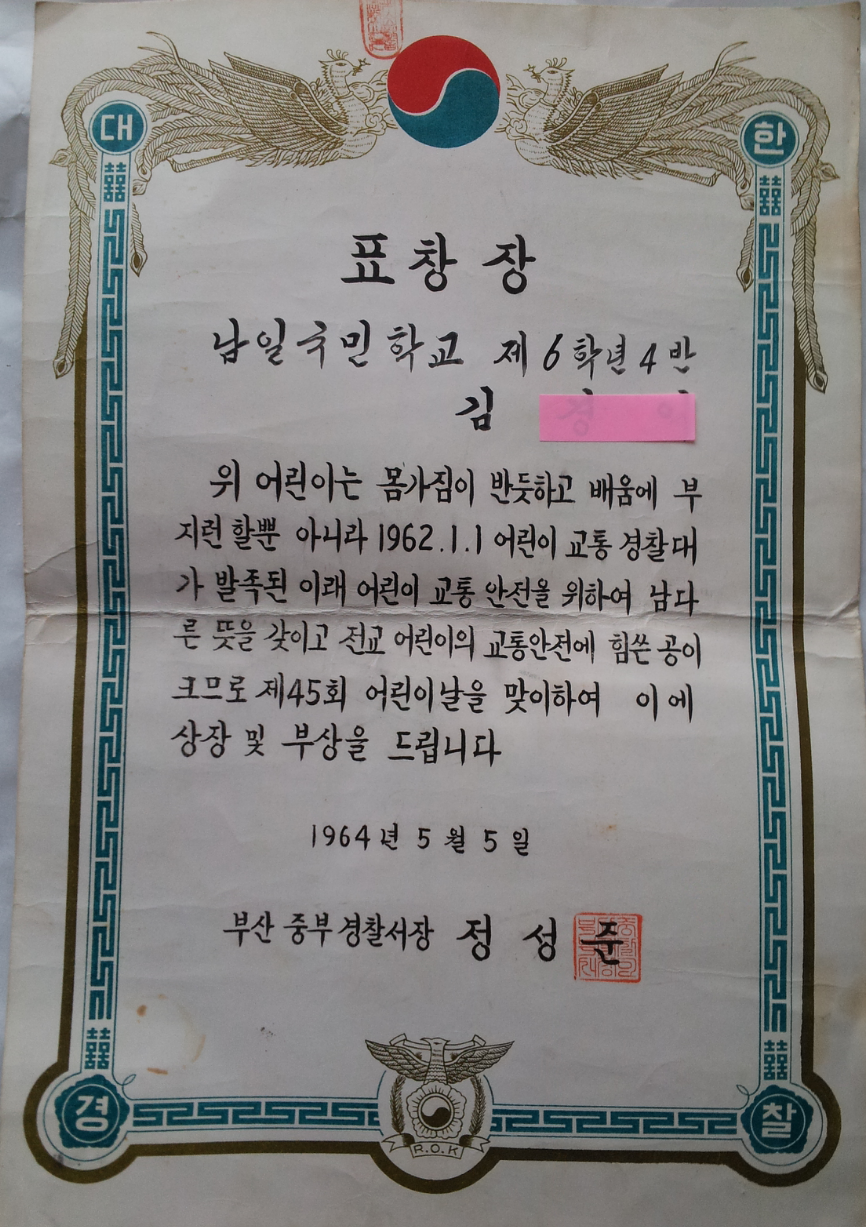 대 한
표창장
남일국민학교 제6학년4반
김
위 어린이는 몸가짐이 반듯하고 배움에 부
지런할뿐 아니라 1962.1.1 어린이 교통 경찰대
가 발족된 이래 어린이 교통 안전을 위하여 남다
른 뜻을 갖이고 전교 어린이의 교통안전에 힘쓴 공이
크므로 제45회 어린이날을 맞이하여 이에
상장 및 부상을 드립니다
1964년 5월 5일
부산 중부경찰서장 정성준
경 찰
R.O.K